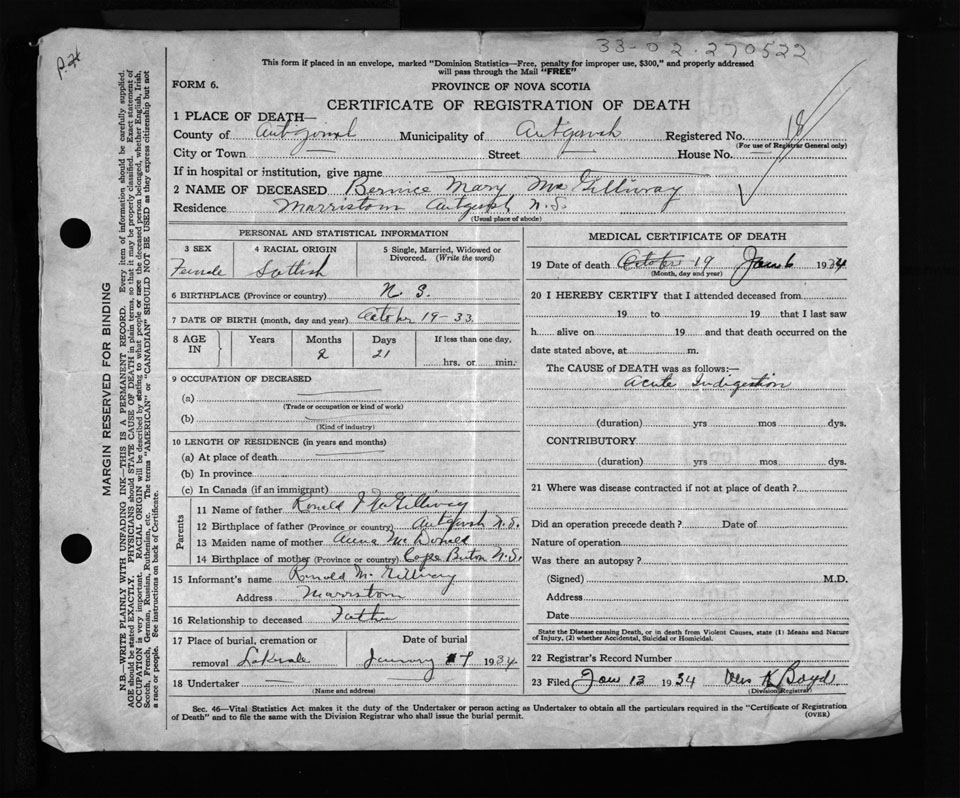 33-02-270522
p. 21
This form if placed in an envelope, marked "Dominion Statistics—Free, penalty for improper use, $300," and properly addressed
will pass through the Mail "FREE"
FORM 6.
PROVINCE OF NOVA SCOTIA
CERTIFICATE OF REGISTRATION OF DEATH
1 PLACE OF DEATH—
County of Antigonish Municipality of Antigonish Registered No. 18
(For use of Registrar General only)
City or Town Street House No.
If in hospital or institution, give name
2 NAME OF DECEASED Bernice Mary McGillivray
Residence Marristown Antigonish N.S.
(Usual place of abode)
PERSONAL AND STATISTICAL INFORMATION
3 SEX 4 RACIAL ORIGIN 5 Single, Married, Widowed or
Divorced. (Write the word)
Female Scottish
6 BIRTHPLACE (Province or country) N. S.
7 DATE OF BIRTH (month, day and year) October 19-33.
8 AGE Years Months Days If less than one day,
IN 2 21 hrs. or min.
9 OCCUPATION OF DECEASED
(a)
(Trade or occupation or kind of work)
(b)
(Kind of industry)
10 LENGTH OF RESIDENCE (in years and months)
(a) At place of death
(b) In province
(c) In Canada (if an immigrant)
Parents
11 Name of father Ronald J McGillivray
12 Birthplace of father (Province or country) Antigonish N.S.
13 Maiden name of mother Anna McDonald
14 Birthplace of mother (Province or country) Cape Breton N.S.
15 Informant's name Ronald McGillivray
Address Marristown
16 Relationship to deceased Father
17 Place of burial, cremation or Date of burial
removal Lakevale January 7 1934
18 Undertaker
(Name and address)
MEDICAL CERTIFICATE OF DEATH
19 Date of death October 19 Jan 6 1934
(Month, day and year)
20 I HEREBY CERTIFY that I attended deceased from
19 to 19 that I last saw
h alive on 19 and that death occurred on the
date stated above, at m.
The CAUSE of DEATH was as follows:—
Acute Indigestion
(duration) yrs mos dys.
CONTRIBUTORY
(duration) yrs mos dys.
21 Where was disease contracted if not at place of death?
Did an operation precede death? Date of
Nature of operation
Was there an autopsy?
(Signed) M.D.
Address
Date
State the Disease causing Death, or in death from Violent Causes, state (1) Means and Nature
of Injury, (2) whether Accidental, Suicidal or Homicidal.
22 Registrar's Record Number
23 Filed Jan 13 1934 K Boyd
(Division Registrar)
Sec. 46—Vital Statistics Act makes it the duty of the Undertaker or person acting as Undertaker to obtain all the particulars required in the "Certificate of Registration
of Death" and to file the same with the Division Registrar who shall issue the burial permit.
(OVER)
MARGIN RESERVED FOR BINDING
N.B.—WRITE PLAINLY WITH UNFADING INK—THIS IS A PERMANENT RECORD. Every item of information should be carefully supplied.
AGE should be stated EXACTLY. PHYSICIANS should STATE CAUSE OF DEATH in plain terms, so that it may be properly classified. Exact statement of
OCCUPATION is very important. RACIAL ORIGIN will be described by stating to what people or race the deceased person belonged, whether English, Irish,
Scotch, French, German, Russian, Ruthenian, etc. The terms "AMERICAN" or "CANADIAN" SHOULD NOT BE USED as they express citizenship but not
a race or people. See instructions on back of Certificate.